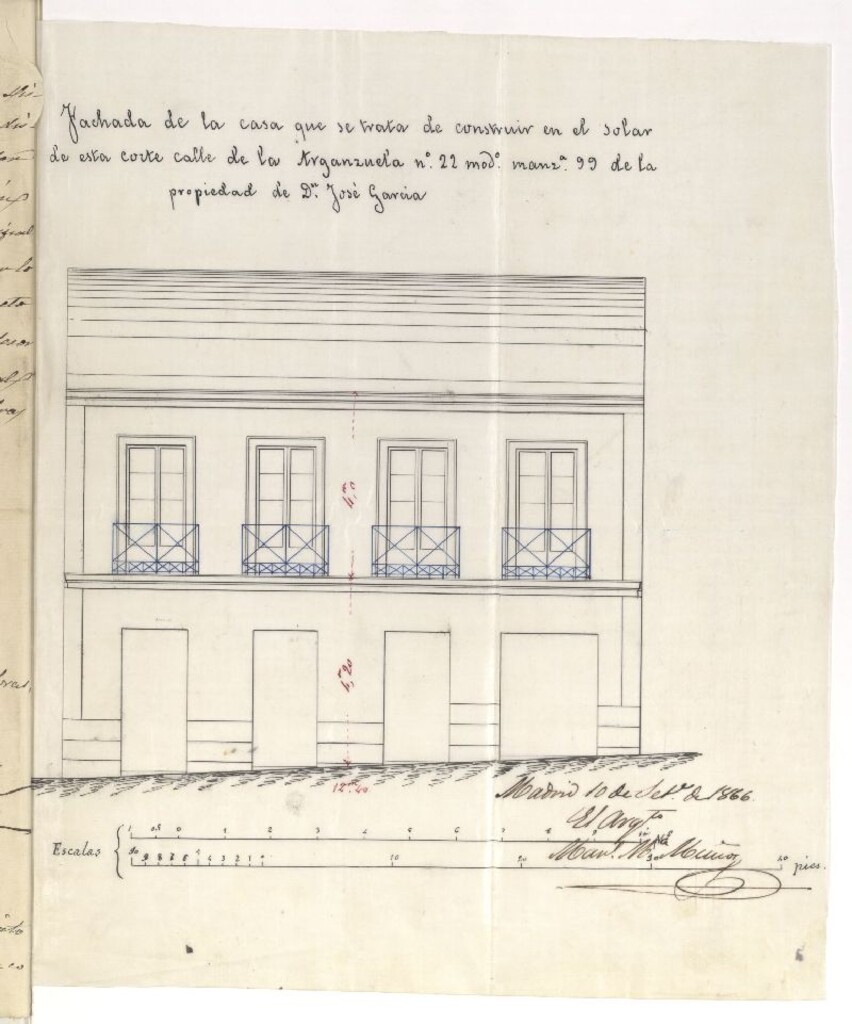 Fachada de la casa que se trata de construir en el solar
de esta corte calle de la Arganzuela nº. 22 modº. manzª. 99 de la
propiedad de Dn. José Garcia
4,20
12m.40
Madrid 10 de Set.e de 1866.
El Arqto
Man.l Muñoz
Escalas
1 0,5 0 1 2 3 4 5 6 7
10 9 8 7 6 5 4 3 2 1 0 10 20 30 40 pies.